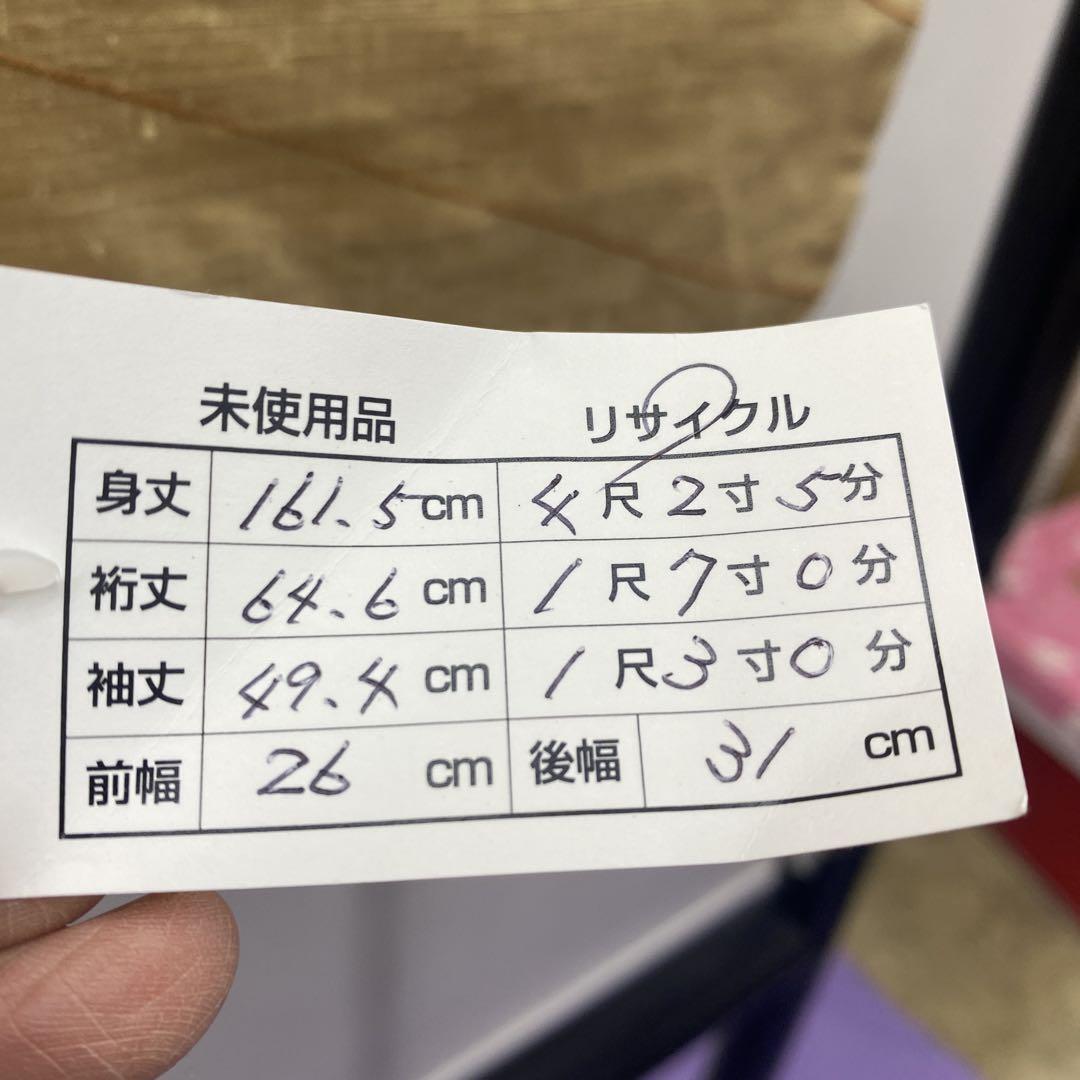 未使用品 リサイクル
身丈 161.5cm 4尺2寸5分
裄丈 64.6cm 1尺7寸0分
袖丈 49.4cm 1尺3寸0分
前幅 26cm 後幅 31cm